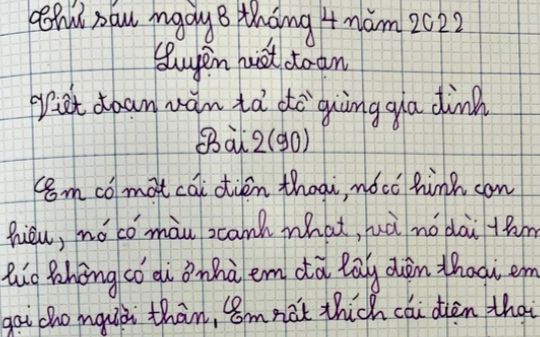 Thứ sáu ngày 8 tháng 4 năm 2022
Luyện viết đoạn
Viết đoạn văn tả đồ giùng gia đình
Bài 2 (90)
Em có một cái điện thoại, nó có hình con
hiêu, nó có màu xanh nhạt, và nó dài 14cm
lúc không có ai ở nhà em đã lấy điện thoại em
gọi cho người thân, Em rất thích cái điện thoại